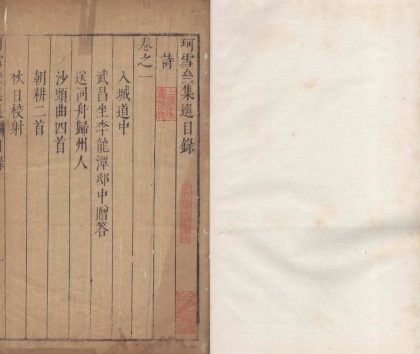 珂雪空集選目錄
詩
卷之一
入城道中
武昌坐李龍潭邸中贈答
送河舟歸州人
沙頭曲四首
朝耕二首
秋日校射